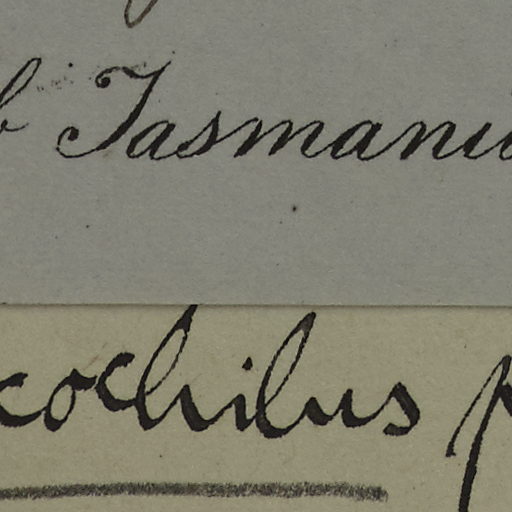 Tasmani
cochilus p